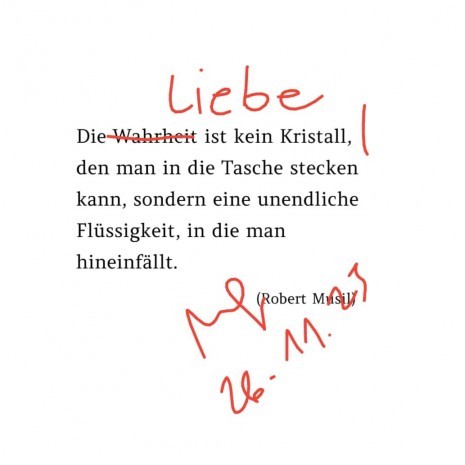 Liebe
Die Wahrheit ist kein Kristall,
den man in die Tasche stecken
kann, sondern eine unendliche
Flüssigkeit, in die man
hineinfällt.
(Robert Musil)
26.11.23